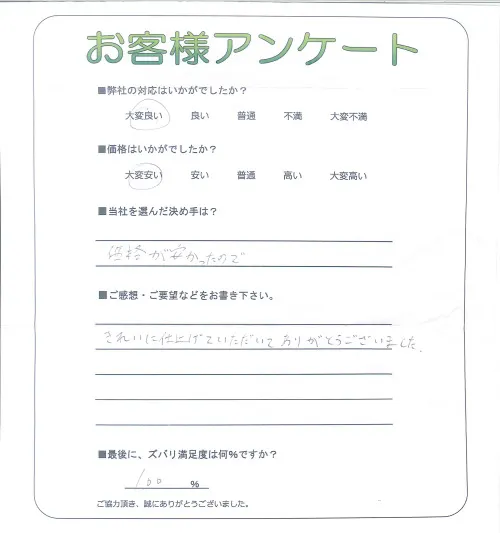 お客様アンケート
■弊社の対応はいかがでしたか？
大変良い 良い 普通 不満 大変不満
■価格はいかがでしたか？
大変安い 安い 普通 高い 大変高い
■当社を選んだ決め手は？
価格が安かったので
■ご感想・ご要望などをお書き下さい。
きれいに仕上げていただいてありがとうございました。
■最後に、ズバリ満足度は何％ですか？
100 %
ご協力頂き、誠にありがとうございました。